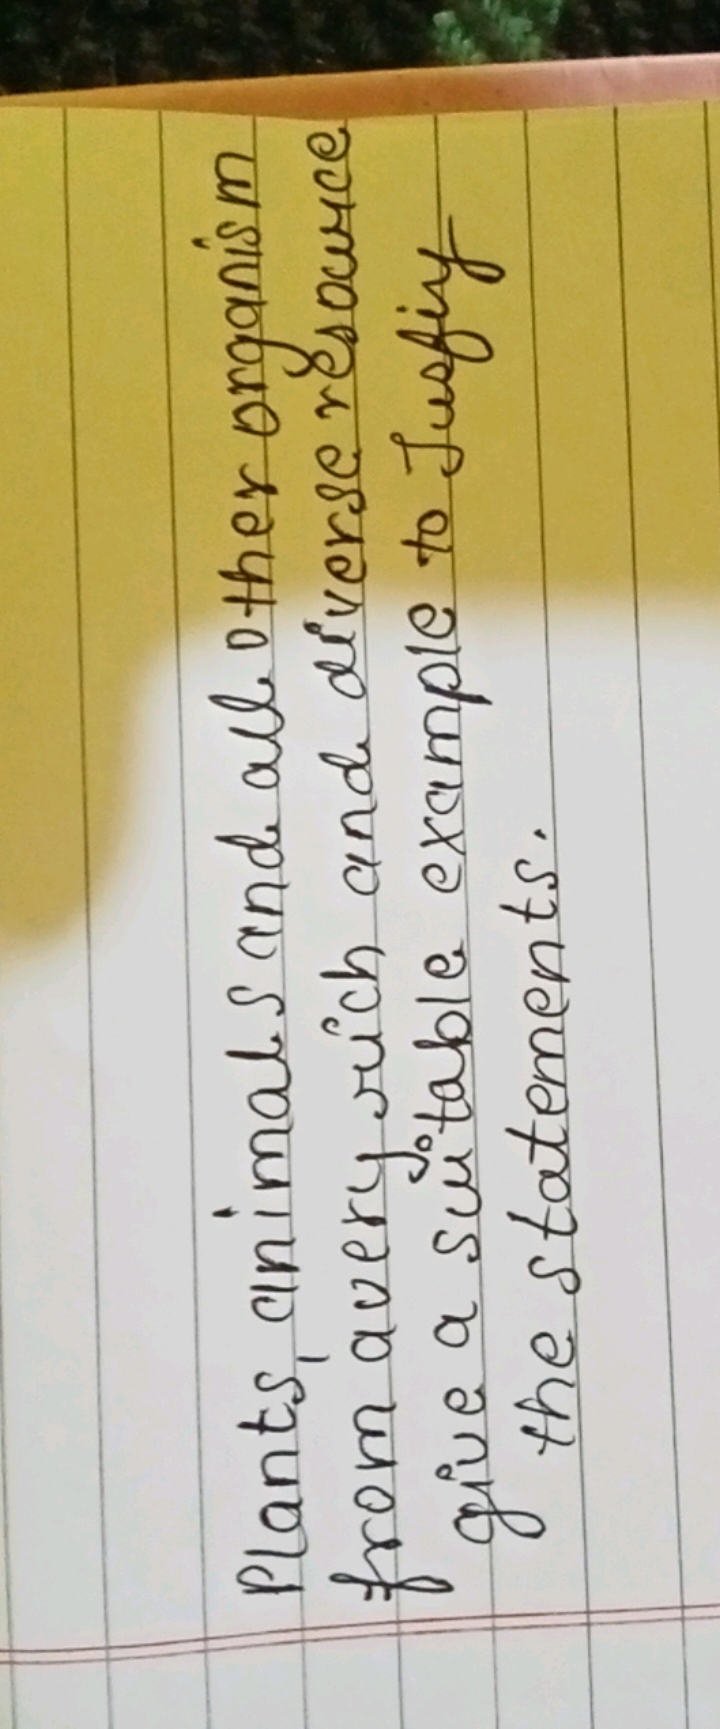 Plants, animals and all other organism
from avery rich and diverse resource
give a suitable example to Jusfiy
the statements.